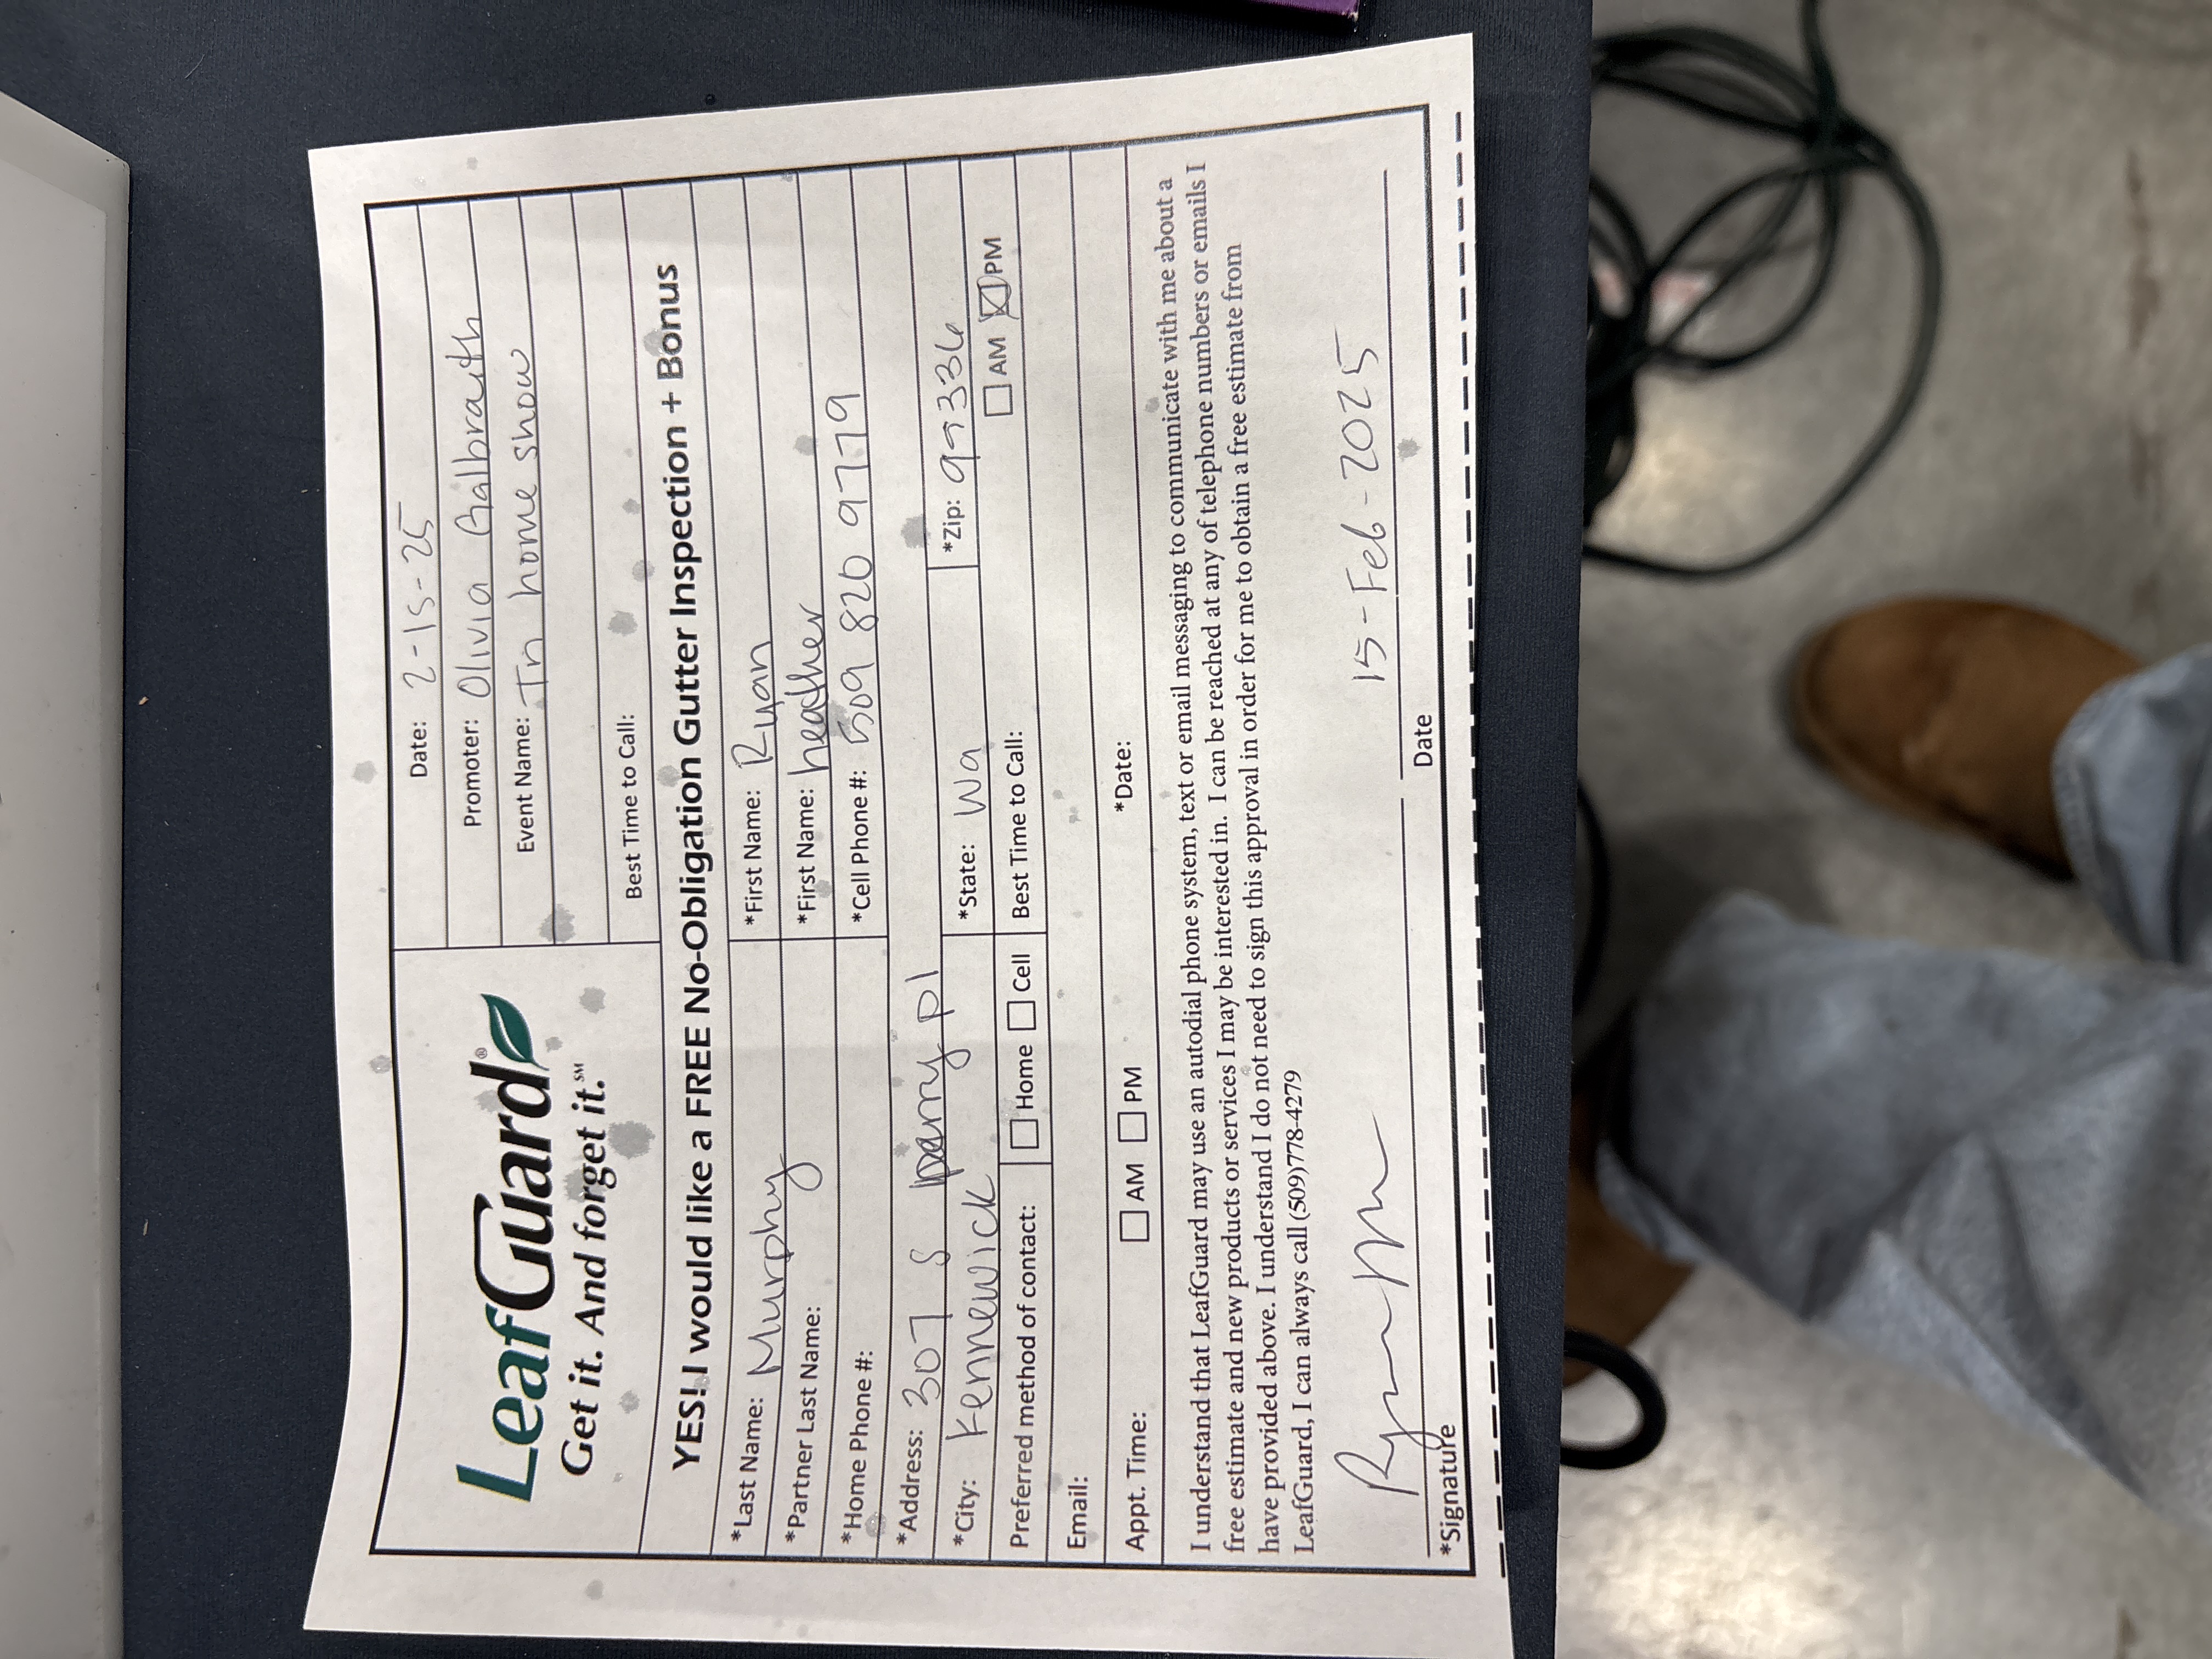 LeafGuard®
Get it. And forget it.℠
Date: 2-15-25
Promoter: Olivia Galbraith
Event Name: Tri home show
Best Time to Call:
YES! I would like a FREE No-Obligation Gutter Inspection + Bonus
*Last Name: Murphy *First Name: Ryan
*Partner Last Name: *First Name: heather
*Home Phone #: *Cell Phone #: 509 820 9779
*Address: 307 S perry pl
*City: Kennewick *State: Wa *Zip: 99336
Preferred method of contact: Home Cell Best Time to Call: AM PM
Email:
Appt. Time: AM PM *Date:
I understand that LeafGuard may use an autodial phone system, text or email messaging to communicate with me about a
free estimate and new products or services I may be interested in. I can be reached at any of telephone numbers or emails I
have provided above. I understand I do not need to sign this approval in order for me to obtain a free estimate from
LeafGuard, I can always call (509)778-4279
15-Feb-2025
*Signature Date